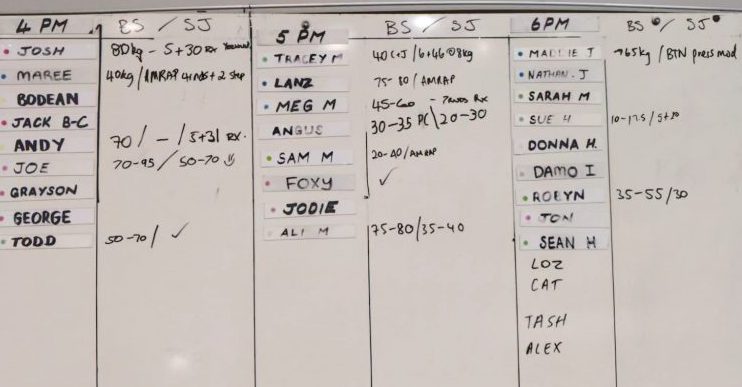 4 PM BS / SJ
JOSH 80kg - 5+30 Rx
MAREE 40kg / AMRAP 4 rnds + 2 step
BODEAN
JACK B-C
ANDY 70 / - / 5+31 RX.
JOE 70-95 / 50-70
GRAYSON
GEORGE
TODD 50-70 / ✓
5 PM BS / SJ
TRACEY M 40 C+J / 6+46 @ 8kg
LANZ 75-80 / AMRAP
MEG M 45-60 - Rx
ANGUS 30-35 PC \ 20-30
SAM M 20-40 / AMRAP
FOXY ✓
JODIE
ALI M 75-80/35-40
6PM BS / SJ
MADDIE T 65kg / BTN press mod
NATHAN. J
SARAH M
SUE H 10-17.5 / 5+20
DONNA H.
DAMO I
ROBYN 35-55/30
JON
SEAN H
LOZ
CAT
TASH
ALEX